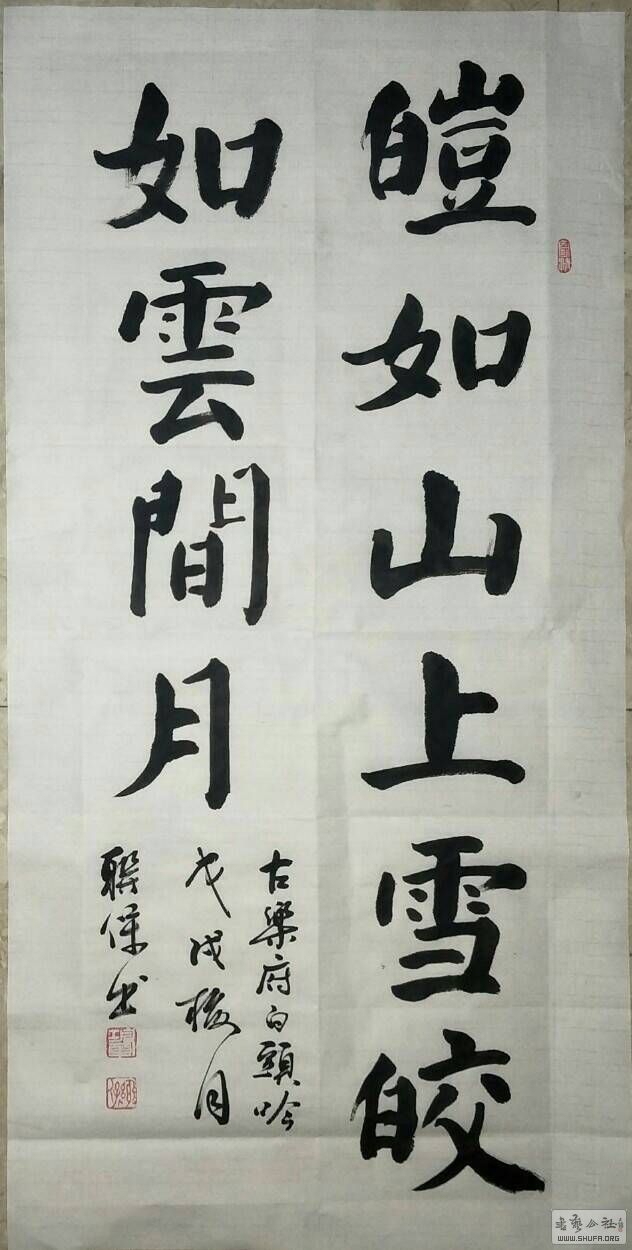 皚如山上雪皎
如雲間月
古樂府白頭吟
戊戌梅月
聯保书
书艺公社
WWW.SHUFA.ORG